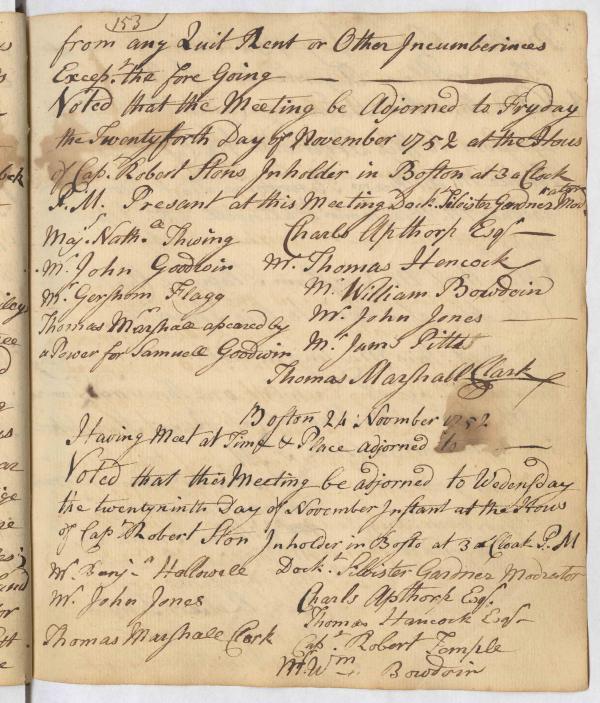 153
from any Quit Rent or Other Incumberinces
Excep.t the fore Going
Voted that the Meeting be Adjorned to Fryday
the Twentyforth Day of November 1752 at the Hous
of Cap.t Robert Stons Inholder in Boston at 3 a Clock
P.M. Presant at this Meeting Dock.t Silvister Gardner Mod
Maj.r Nath.a Thwing
Charls Apthorp Esq.r
M.r John Goodwin
M.r Thomas Hencock
M.r Gershom Flagg
M.r William Bowdoin
M.r John Jones
Thomas Marshall apeared by
a Power for Samuell Goodwin
M.r Jams Pitts
Thomas Marshall Clark
Boston 24: Noomber 1752
Having Meet at Time & Place adjorned to
Voted that this Meeting be adjorned to Wedensday
the twentyninth Day of November Instant at the Hous
of Cap.t Robert Ston Inholder in Bosto at 3 a Cloak P.M
M.r Benj.a Hallowell
Dock.t Silvister Gardner Modrator
M.r John Jones
Charls Apthorp Esq.r
Thomas Hancock Esq.r
Thomas Marshall Clark
Cap.t Robert Temple
M.r W.m Bowdoin